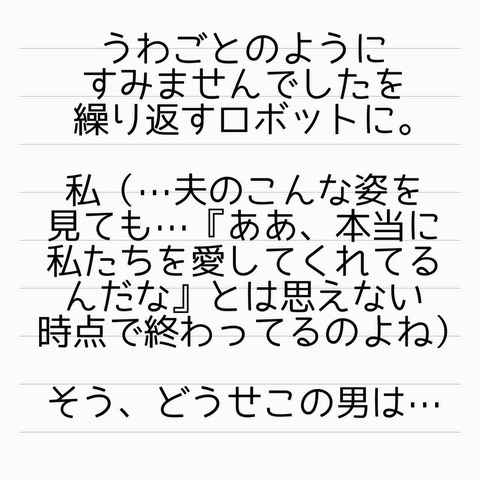 うわごとのように
すみませんでしたを
繰り返すロボットに。
私（…夫のこんな姿を
見ても…『ああ、本当に
私たちを愛してくれてる
んだな』とは思えない
時点で終わってるのよね）
そう、どうせこの男は…